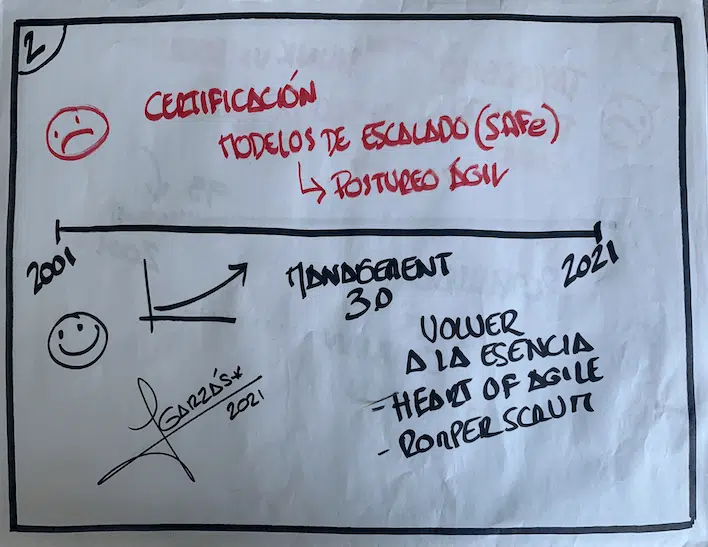 2
CERTIFICACIÓN
MODELOS DE ESCALADO (SAFe)
POSTUREO ÁGIL
2001
2021
MANAGEMENT
3.0
VOLVER
A LA ESENCIA
- HEART OF AGILE
- ROMPER SCRUM
GARZÁS*
2021